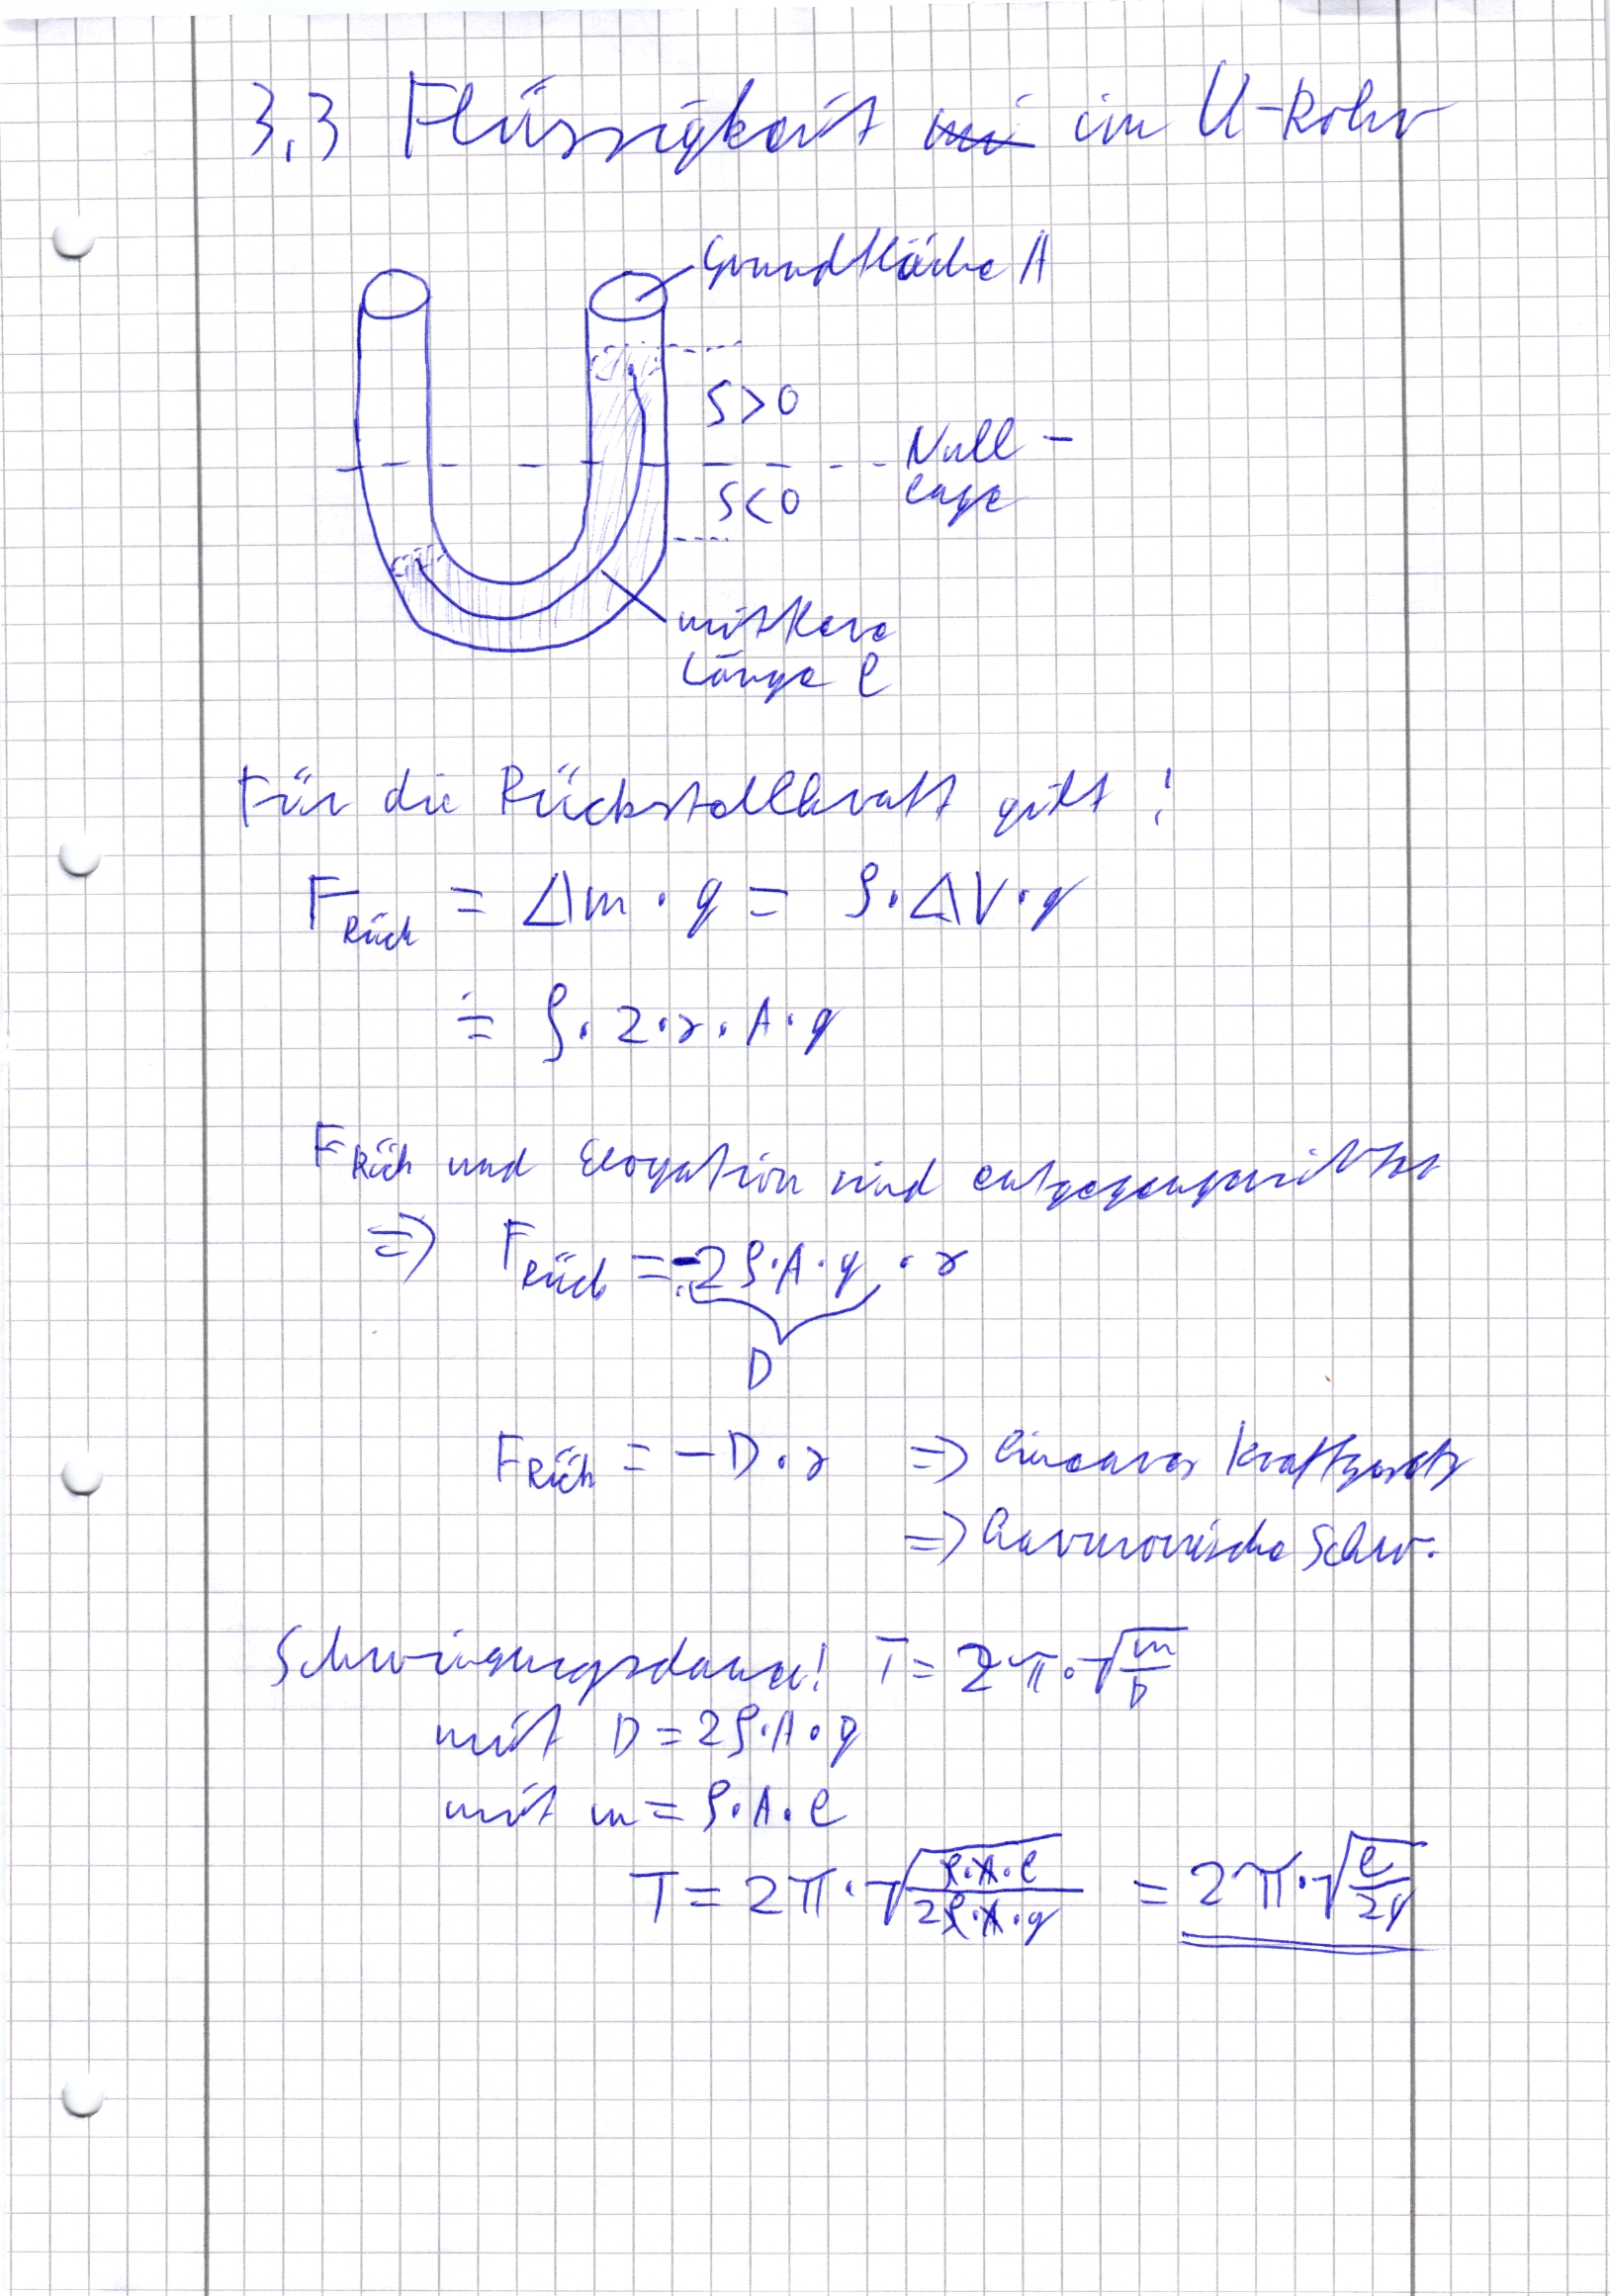 3.3 Flüssigkeit im U-Rohr
Grundfläche A
s>0
Null-
s<0
lage
mittlere
Länge l
Für die Rückstellkraft gilt:
F_Rück = Δm · g = ρ · ΔV · g
= ρ · 2 · s · A · g
F_Rück und Elogation sind entgegengerichtet
⇒ F_Rück = -2ρ · A · g · s
D
F_Rück = -D · s ⇒ lineares Kraftgesetz
⇒ harmonische Schw.
Schwingungsdauer: T = 2π · √(m/D)
mit D = 2ρ · A · g
mit m = ρ · A · l
T = 2π · √(ρ · A · l / 2ρ · A · g) = 2π · √(l/2g)